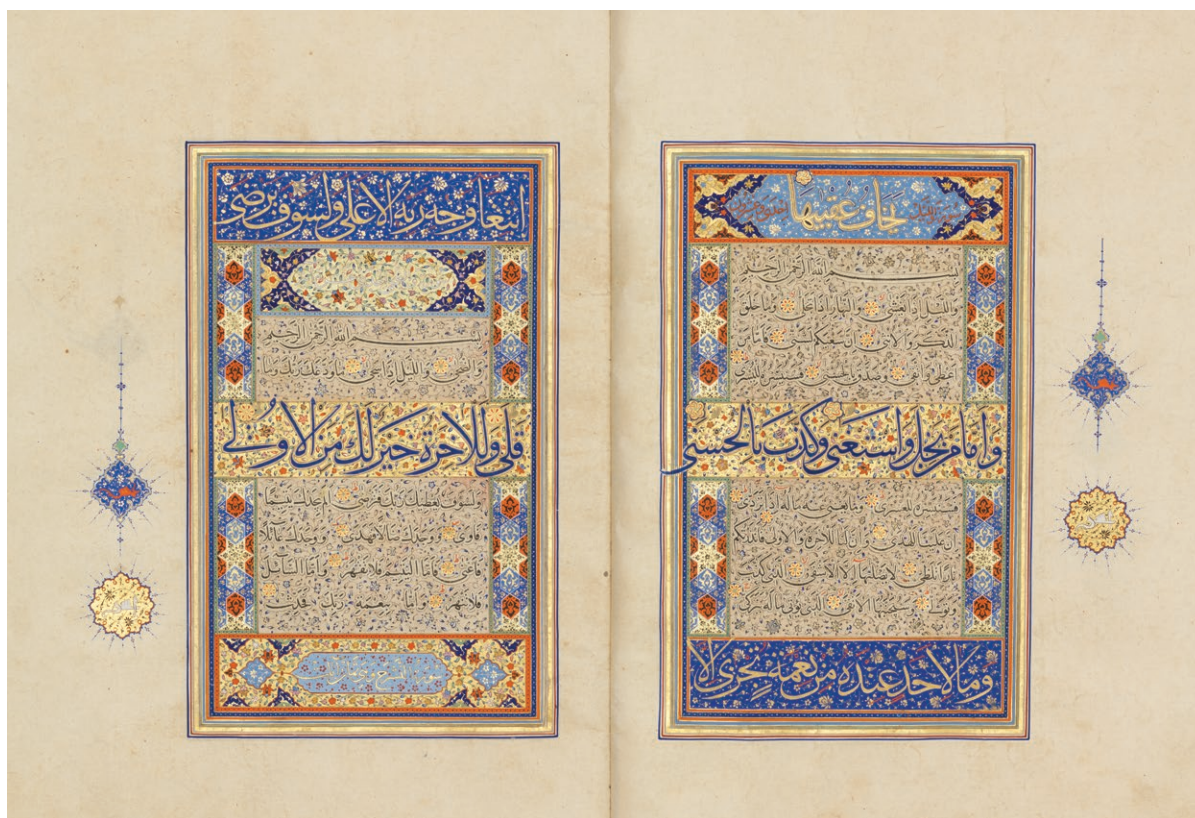 يخاف عقبيها
بسم الله الرحمن الرحيم
والليل اذا يغشى والنهار اذا تجلى وما خلق
الذكر والانثى ان سعيكم لشتى فاما من
اعطى واتقى وصدق بالحسنى فسنيسره لليسرى
واما من بخل واستغنى وكذب بالحسنى
فسنيسره للعسرى وما يغني عنه ماله اذا تردى
ان علينا للهدى وان لنا للاخرة والاولى فانذرتكم
نارا تلظى لا يصليها الا الاشقى الذي كذب
وتولى سيجنبها الاتقى الذي يؤتي ماله يتزكى
وما لاحد عنده من نعمة تجزى الا
ابتغاء وجه ربه الاعلى ولسوف يرضى
بسم الله الرحمن الرحيم
والضحى والليل اذا سجى ما ودعك ربك وما
قلى وللاخرة خير لك من الاولى
ولسوف يعطيك ربك فترضى الم يجدك يتيما
فاوى ووجدك ضالا فهدى ووجدك عائلا
فاغنى فاما اليتيم فلا تقهر واما السائل
فلا تنهر واما بنعمة ربك فحدث